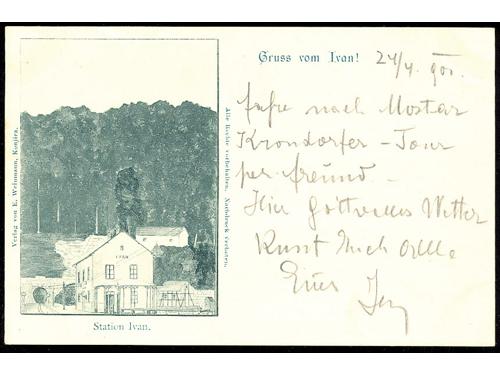 Gruss vom Ivan!
24/4. 900.
nach Mostar
Krondorfer - Tour
per freund -
Hier Gottvolles Wetter
Kusst Euch Alle
Euer
IVAN
Station Ivan.
Verlag von E. Weinmann, Konjica.
Alle Rechte vorbehalten. Nachdruck verboten.